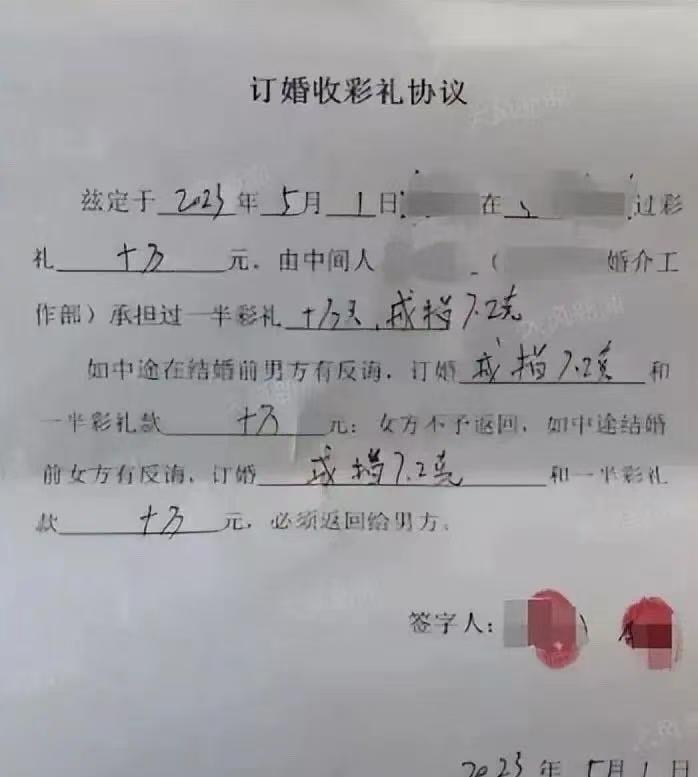 订婚收彩礼协议
兹定于 2023 年 5 月 1 日 在 过彩
礼 十万 元. 由中间人 ( 婚介工
作部) 承担过一半彩礼 十万元. 戒指7.2克
如中途在结婚前男方有反诲, 订婚 戒指7.2克 和
一半彩礼款 十万 元; 女方不予返回, 如中途结婚
前女方有反诲, 订婚 戒指7.2克 和一半彩礼
款 十万 元, 必须返回给男方.
签字人:
2023 年 5 月 1 日